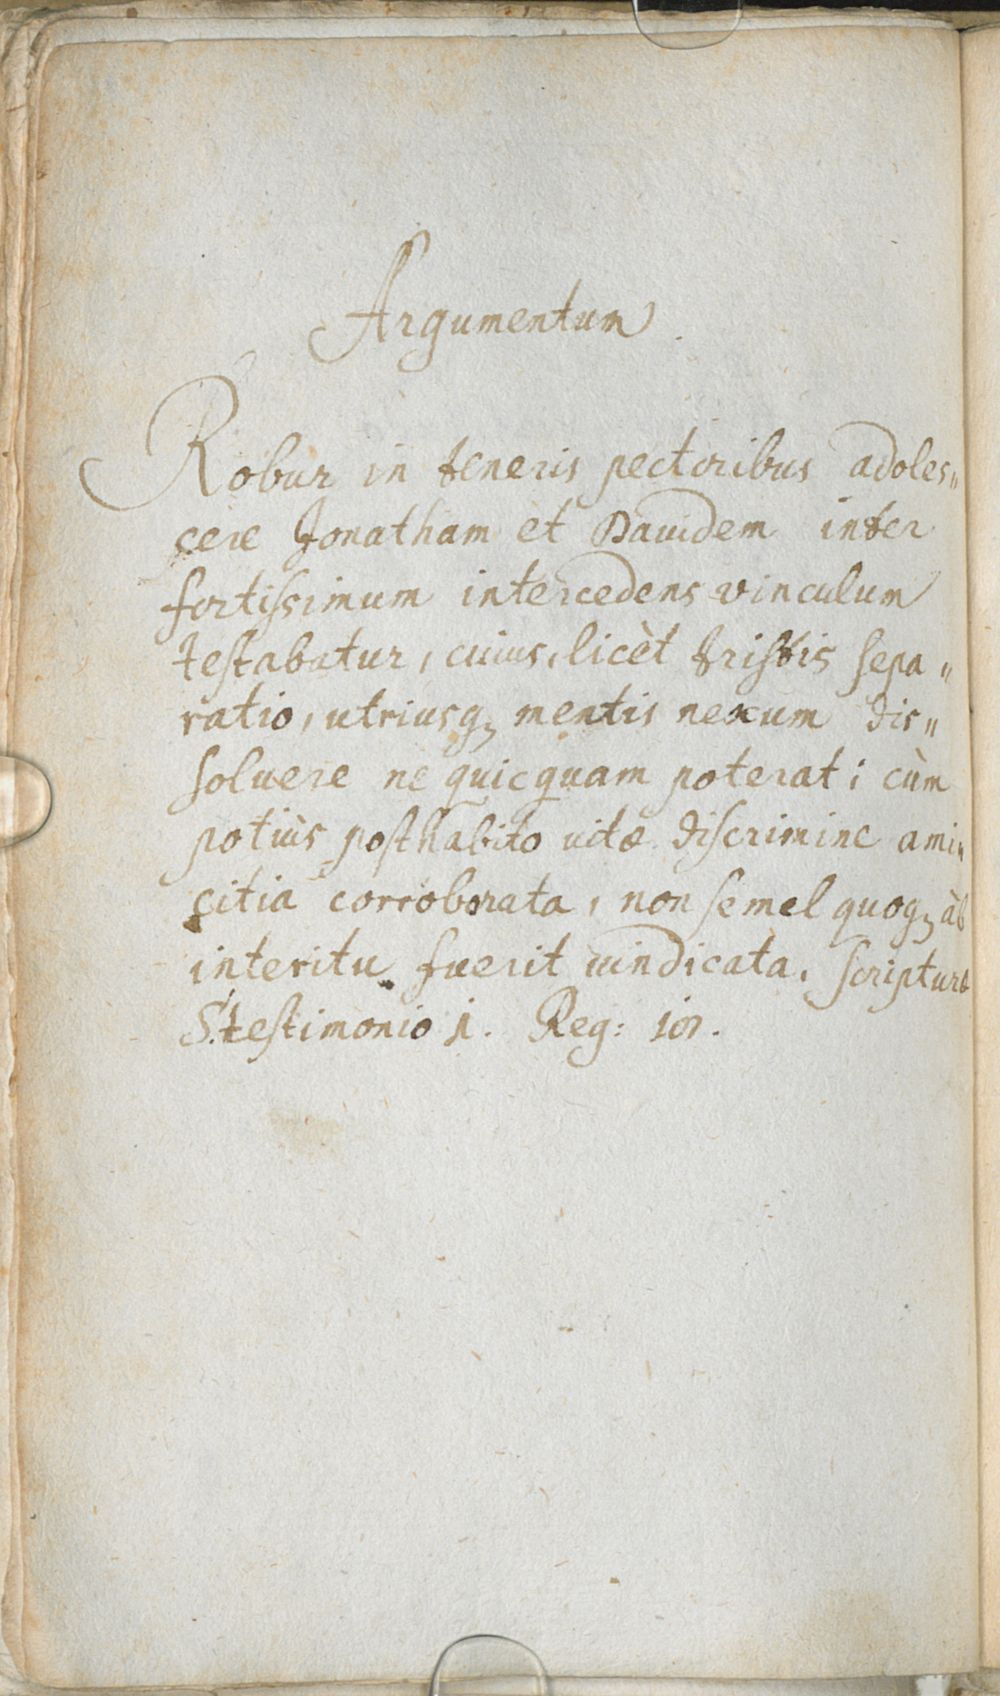 Argumentum.
Robur in teneris pectoribus adoles„
cere Jonatham et Dauidem inter
fortissimum intercedens vinculum
testabatur, cuius, licèt tristis sepa„
ratio, utriusq; mentis nexum dis„
soluere ne quicquam poterat; cùm
potiùs posthabito uitæ discrimine ami„
citia corroborata, non semel quoq; àb
interitu fuerit uindicata. Scripturæ
S. testimonio 1. Reg: